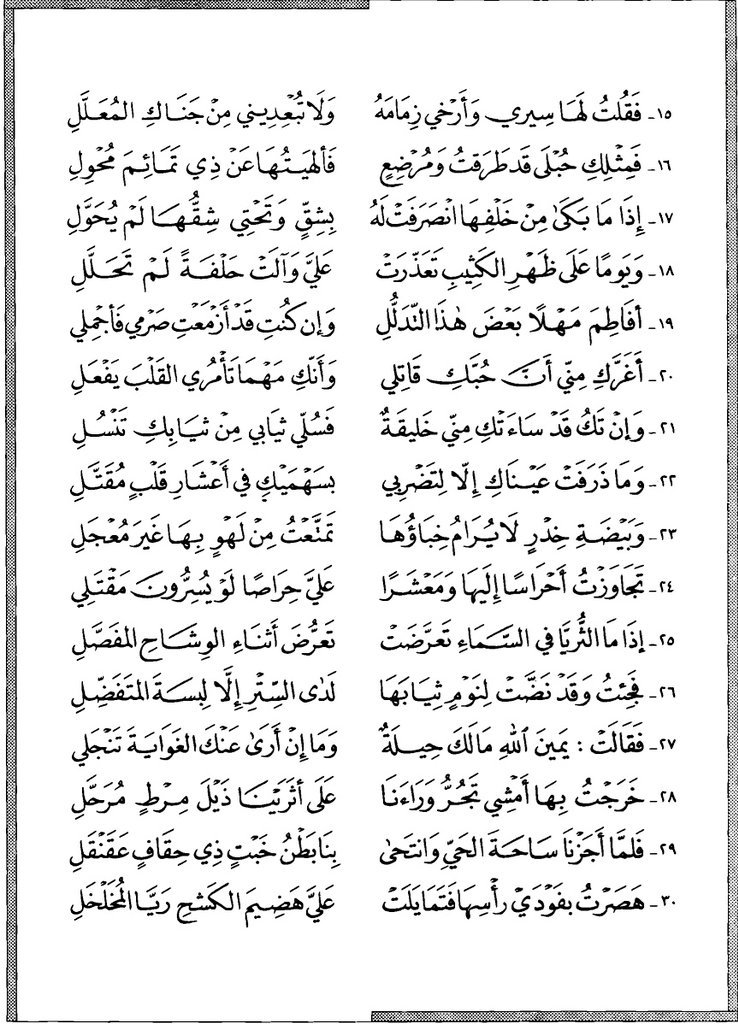 ١٥- فَقُلتُ لَهَا سِيري وَأَرْخي زِمَامَهُ وَلَا تُبْعِدِيني مِنْ جَنَاكِ المُعَلَّلِ
١٦- فَمِثْلِكِ حُبْلَى قَد طَرَقتُ وَمُرْضِعٍ فَأَلهَيتُهَا عَنْ ذِي تَمَائِمَ مُحْوِلِ
١٧- إِذَا مَا بَكَىٰ مِنْ خَلْفِهَا انْصَرَفَتْ لَهُ بِشِقٍّ وَتَحْتِي شِقُّهَا لَمْ يُحَوَّلِ
١٨- وَيَومًا عَلَى ظَهْرِ الكَثِيبِ تَعَذَّرَتْ عَلَيَّ وَآلَتْ حَلْفَةً لَمْ تَحَلَّلِ
١٩- أَفَاطِمَ مَهْلًا بَعْضَ هٰذَا التَّدَلُّلِ وَإِن كُنْتِ قَدْ أَزْمَعْتِ صَرْمي فَأَجْمِلي
٢٠- أَغَرَّكِ مِنّي أَنَّ حُبَّكِ قَاتِلي وَأَنَّكِ مَهْمَا تَأْمُرِي القَلْبَ يَفْعَلِ
٢١- وَإِنْ تَكُ قَدْ سَاءَتْكِ مِنّي خَلِيقَةٌ فَسُلّي ثيَابي مِنْ ثيَابِكِ تَنْسُلِ
٢٢- وَمَا ذَرَفَتْ عَيْنَاكِ إِلّا لِتَضْرِبي بِسَهْمَيْكِ في أَعْشَارِ قَلْبٍ مُقَتَّلِ
٢٣- وَبَيْضَةِ خِدْرٍ لَا يُرَامُ خِبَاؤُهَا تَمَتَّعْتُ مِنْ لَهْوٍ بِهَا غَيرَ مُعْجَلِ
٢٤- تَجَاوَزْتُ أَحْرَاسًا إِلَيهَا وَمَعْشَرًا عَلَيَّ حِرَاصًا لَوْ يُسِرُّونَ مَقْتَلِي
٢٥- إِذَا مَا الثُّرَيَّا في السَّمَاءِ تَعَرَّضَتْ تَعَرُّضَ أَثْنَاءِ الوِشَاحِ المُفَصَّلِ
٢٦- فَجِئتُ وَقَد نَضَّتْ لِنَومٍ ثِيَابَهَا لَدَى السِّتْرِ إِلَّا لِبسَةَ المُتَفَضِّلِ
٢٧- فَقَالَتْ : يَمِينَ اللهِ مَا لَكَ حِيلَةٌ وَمَا إِنْ أَرَىٰ عَنْكَ الغَوَايَةَ تَنْجَلي
٢٨- خَرَجْتُ بِهَا أَمْشِي تَجُرُّ وَرَاءَنَا عَلَى أَثَرَيْنَا ذَيْلَ مِرْطٍ مُرَحَّلِ
٢٩- فَلمَّا أَجَزْنَا سَاحَةَ الحَيِّ وَانتَحَىٰ بِنَا بَطْنُ خَبْتٍ ذِي حِقَافٍ عَقَنْقَلِ
٣٠- هَصَرْتُ بِفَوْدَيْ رَأْسِهَا فَتَمَايَلَتْ عَلَيَّ هَضِيمَ الكَشْحِ رَيَّا المُخَلْخَلِ